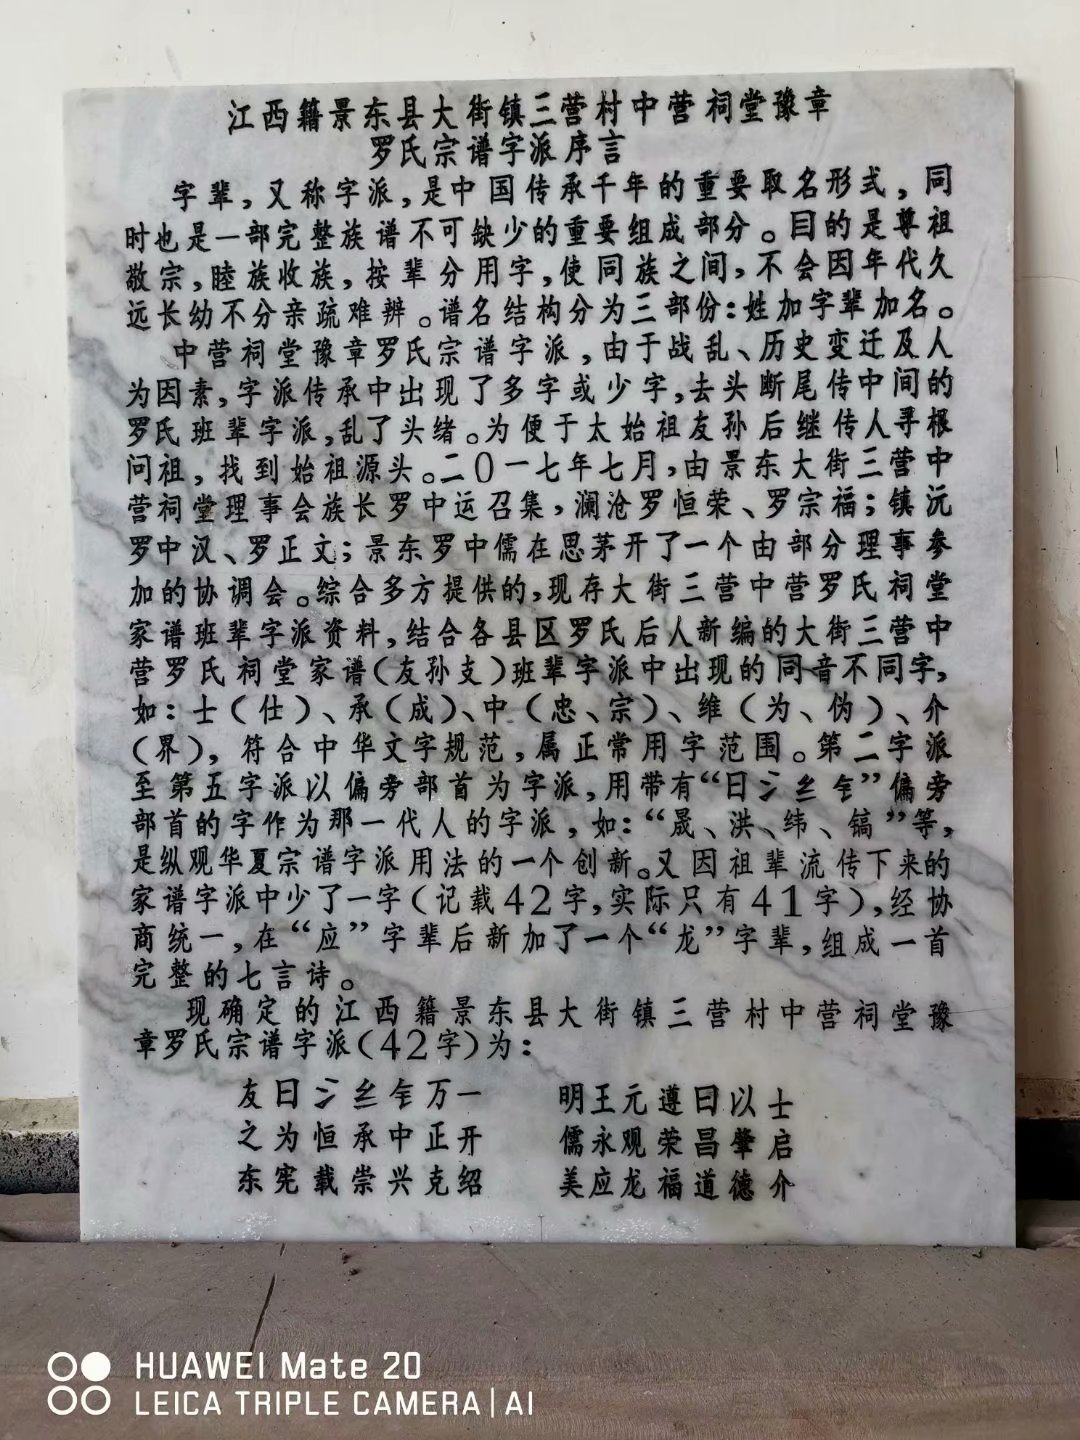 江西籍景东县大街镇三营村中营祠堂豫章
罗氏宗谱字派序言
字辈，又称字派，是中国传承千年的重要取名形式，同
时也是一部完整族谱不可缺少的重要组成部分。目的是尊祖
敬宗，睦族收族，按辈分用字，使同族之间，不会因年代久
远长幼不分亲疏难辨。谱名结构分为三部份：姓加字辈加名。
中营祠堂豫章罗氏宗谱字派，由于战乱、历史变迁及人
为因素，字派传承中出现了多字或少字，去头断尾传中间的
罗氏班辈字派，乱了头绪。为便于太始祖友孙后继传人寻根
问祖，找到始祖源头。二0一七年七月，由景东大街三营中
营祠堂理事会族长罗中运召集，澜沧罗恒荣、罗宗福；镇沅
罗中汉、罗正文；景东罗中儒在思茅开了一个由部分理事参
加的协调会。综合多方提供的，现存大街三营中营罗氏祠堂
家谱班辈字派资料，结合各县区罗氏后人新编的大街三营中
营罗氏祠堂家谱（友孙支）班辈字派中出现的同音不同字，
如：士（仕）、承（成）、中（忠、宗）、维（为、伪）、介
（界），符合中华文字规范，属正常用字范围。第二字派
至第五字派以偏旁部首为字派，用带有“日氵纟钅”偏旁
部首的字作为那一代人的字派，如：“晟、洪、纬、镐”等，
是纵观华夏宗谱字派用法的一个创新。又因祖辈流传下来的
家谱字派中少了一字（记载42字，实际只有41字），经协
商统一，在“应”字辈后新加了一个“龙”字辈，组成一首
完整的七言诗。
现确定的江西籍景东县大街镇三营村中营祠堂豫
章罗氏宗谱字派（42字）为：
友日氵纟钅万一 明王元遵曰以士
之为恒承中正开 儒永观荣昌肇启
东宪载崇兴克绍 美应龙福道德介
HUAWEI Mate 20
LEICA TRIPLE CAMERA | AI